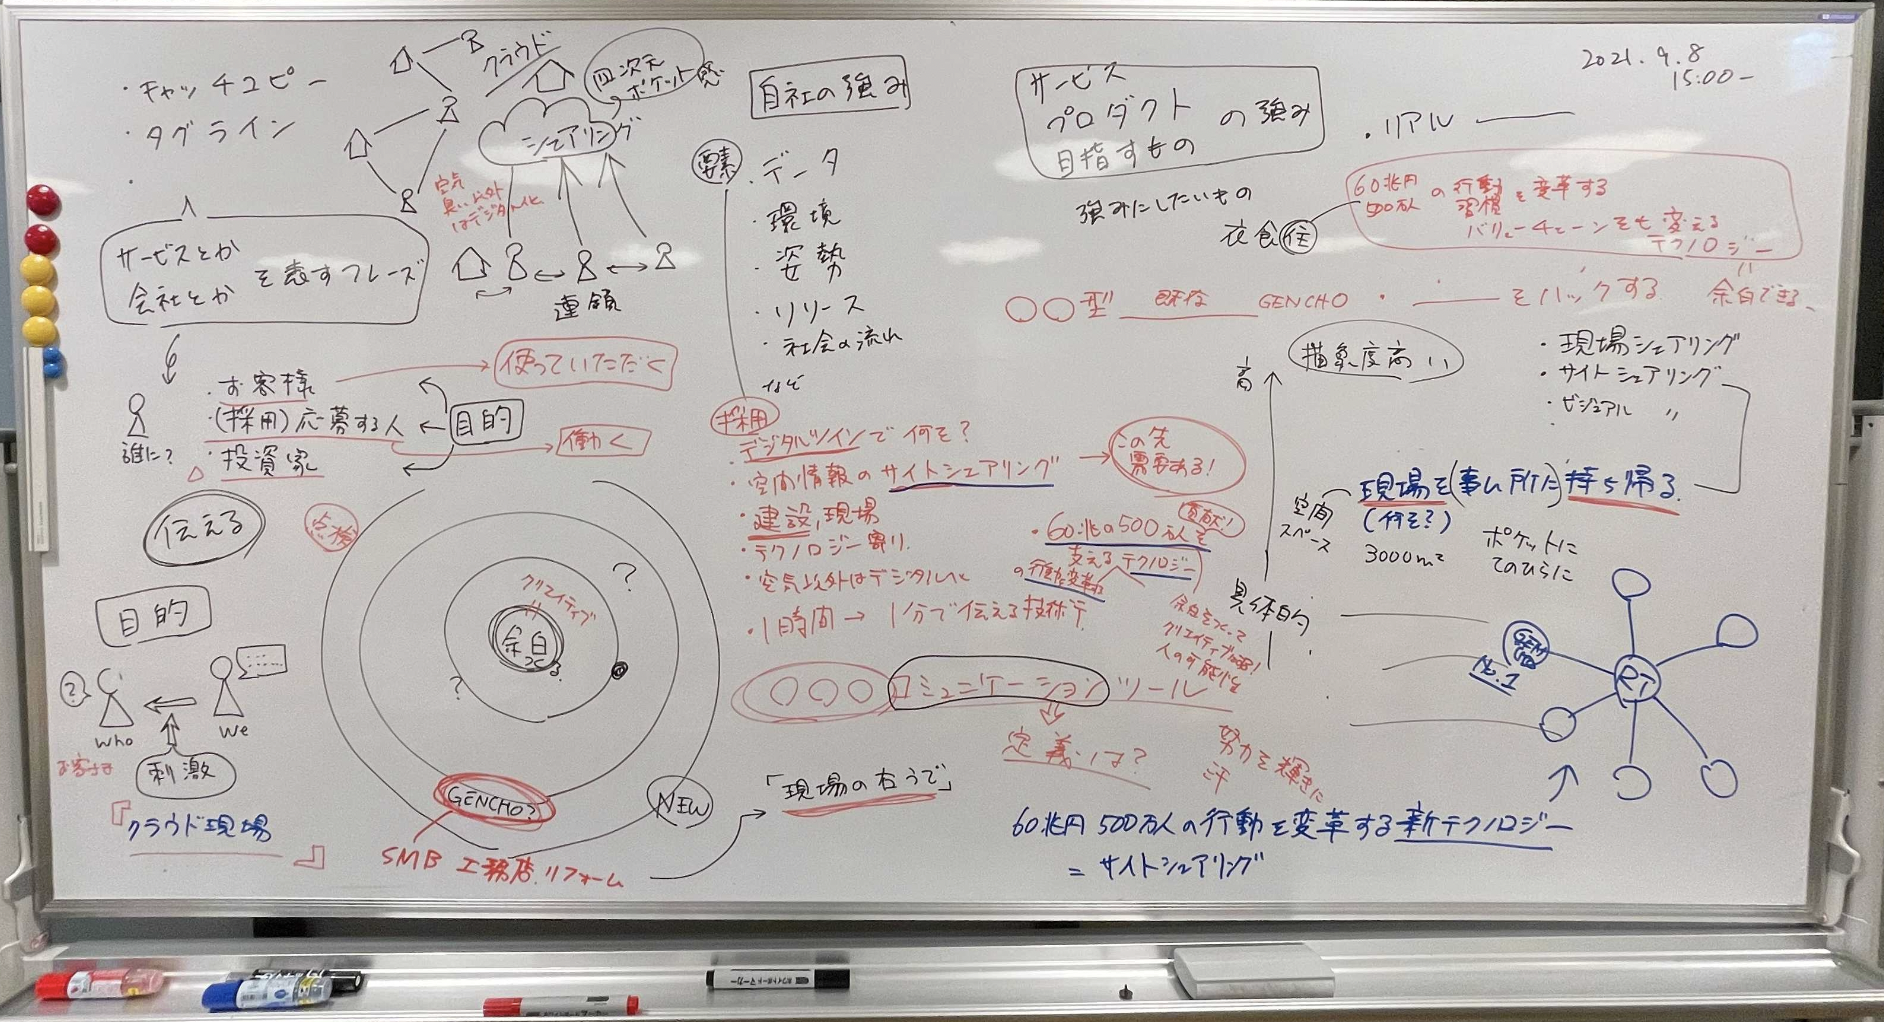 2021.9.8
15:00-
・キャッチコピー
・タグライン
・
サービスとか
会社とか
を表すフレーズ
クラウド
四次元
ポケット感
シェアリング
空気
臭い以外
はデジタル化
連鎖
誰に?
・お客様
・(採用)応募する人
・投資家
目的
使っていただく
働く
伝える
目的
?
who
We
お客さま
刺激
『クラウド現場』
点検
クリエイティブ
余白
つくる
?
?
GENCHO?
NEW
SMB 工務店.リフォーム
「現場の右うで」
自社の強み
要素
・データ
・環境
・姿勢
・リリース
・社会の流れ
など
採用
デジタルツインで何を?
・空間情報のサイトシェアリング
この先
需要ある!
・建設,現場
・テクノロジー寄り.
・空気以外はデジタル化
・1時間→1分で伝える技術
・60兆の500万人を
貢献!
支えるテクノロジー
の行動変革
余白をつくって
クリエイティブ
人の可能性
○○○コミュニケーションツール
定義は?
努力を輝きに
汗
サービス
プロダクト
目指すもの
の強み
・リアル
強みにしたいもの
衣食住
60兆円
500万人
の行動
習慣
を変革する
バリューチェーンをも変える
テクノロジー
余白できる、
○○型 既存 GENCHO ・ をハックする
高
抽象度高い
・現場シェアリング
・サイトシェアリング
・ビジュアル 〃
空間
スペース
現場を(事ム所に)持ち帰る
(何を?)
3000m2
ポケットに
てのひらに
具体的
GEN
CHO
No.1
RT
60兆円500万人の行動を変革する新テクノロジー
=サイトシェアリング
ホワイトボードマーカー